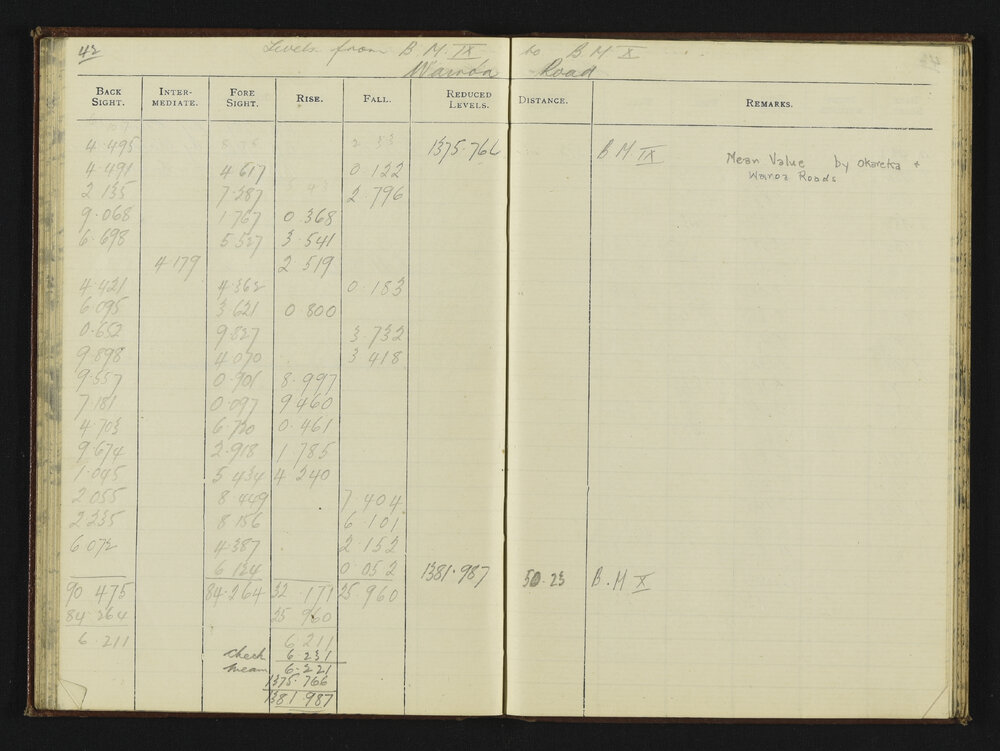 42 Levels from B M IX to B M X
Wairoa Road
BACK SIGHT. INTER-MEDIATE. FORE SIGHT. RISE. FALL. REDUCED LEVELS. DISTANCE. REMARKS.
4.495 1375.766 B M IX Mean Value by Okareka +
Wairoa Roads
4.491 4.617 0.122
2.135 7.287 2.796
9.068 1.767 0.368
6.698 5.527 3.541
4.179 2.519
4.421 4.362 0.183
6.095 3.621 0.800
0.652 9.827 3.732
9.898 4.070 3.418
9.557 0.901 8.997
7.181 0.097 9.460
4.703 6.720 0.461
9.674 2.918 1.785
1.045 5.434 4.240
2.055 8.449 7.404
2.235 8.156 6.101
6.072 4.387 2.152
6.124 0.052 1381.987 50.23 B.M X
90.475 84.264 32.171 25.960
84.264 25.960
6.211 6.211
check 6.231
mean 6.221
1375.766
1381.987